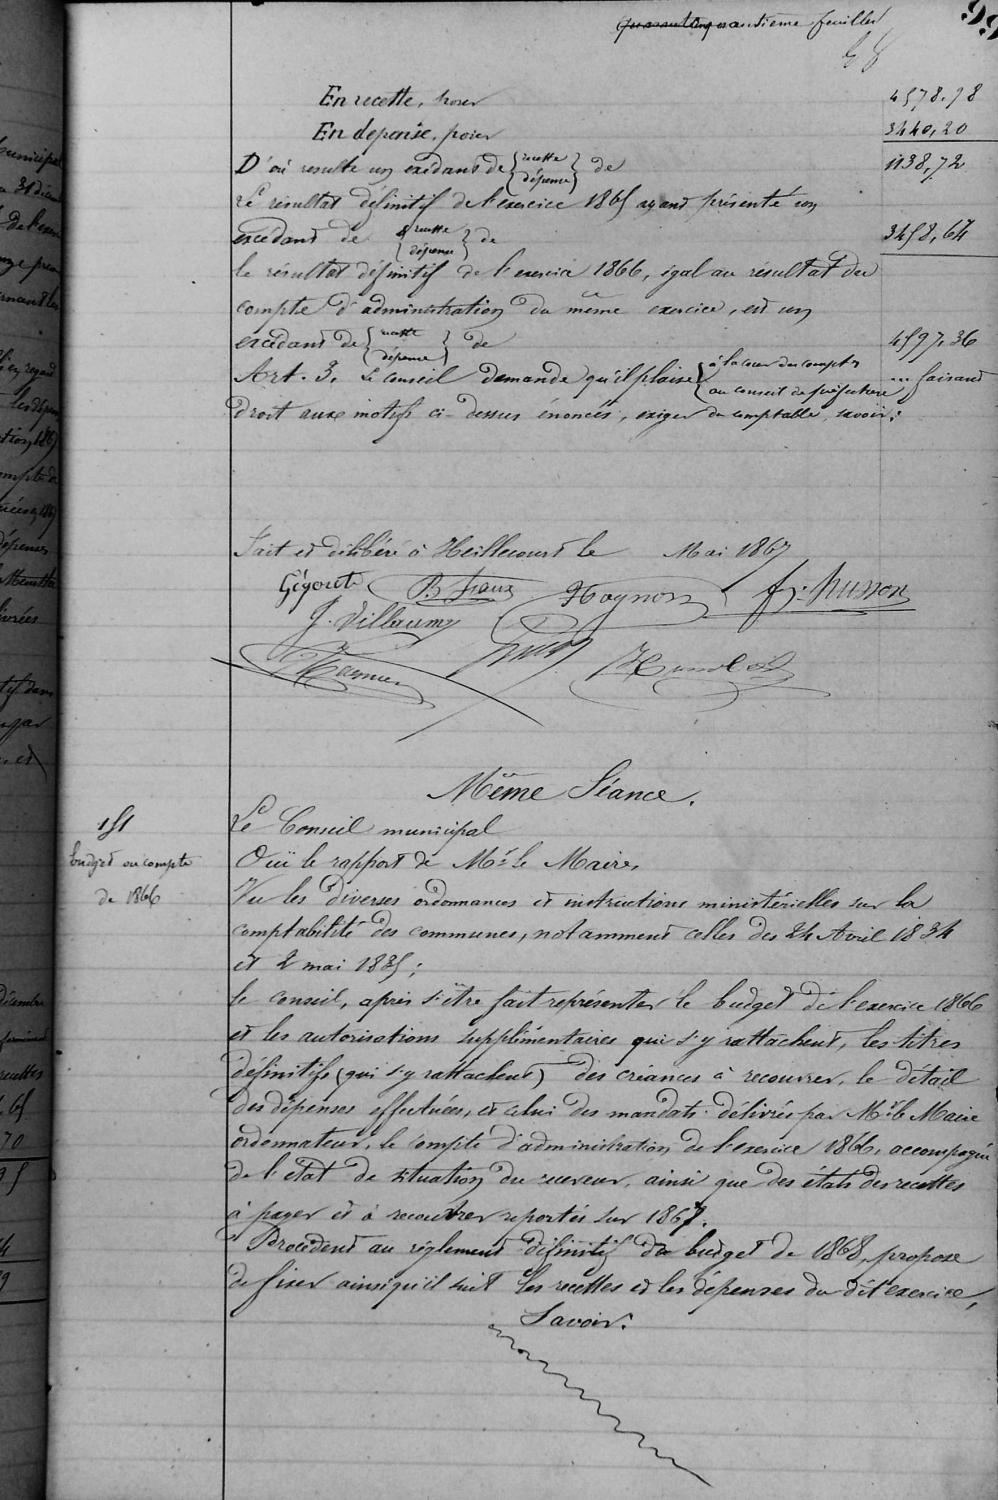 feuillet
99
En recette, pour 4578.98
En depense, pour 3440,20
D'où resulte un exédant de {recette / dépense} de 1138,72
Le résultat définitif de l'exercice 1865 ayant présenté un
excédant de {recette / dépense} de 3458,64
le résultat définitif de l'exercice 1866, égal au résultat du
compte d'administration du même exercice, est un
excédant de {recette / dépense} de 4597.36
Art. 3. Le conseil demande qu'il plaise {à la cour des comptes / au conseil de préfecture ... faisant
droit aux motifs ci-dessus énoncés, exiger du comptable, savoir:
Fait et délibéré à Heillecourt le Mai 1867
Gégoret B. Hanoz Hognon fs. husson
J. Villaume
Même Séance.
151
budget ou compte
de 1866
Le Conseil municipal
Ouï le rapport de Mr. le Maire,
Vu les diverses ordonnances et instructions ministérielles sur la
comptabilité des communes, notamment celles des 24 Avril 1834
et 2 mai 1835;
le conseil, après s'être fait représenter le budget de l'exercice 1866
et les autorisations supplémentaires qui s'y rattachent, les titres
définitifs (qui s'y rattachent) des créances à recouvrer, le détail
des dépenses effectuées, et celui des mandats délivrés par Mr. le Maire
ordonnateur, le compte d'administration de l'exercice 1866, accompagné
de l'état de situation du receveur, ainsi que des états des recettes
à payer et à recouvrer reportés sur 1867.
Procédent au réglement définitif du budget de 1868, propose
de fixer ainsi qu'il suit les recettes et les dépenses du dit exercice,
Savoir: